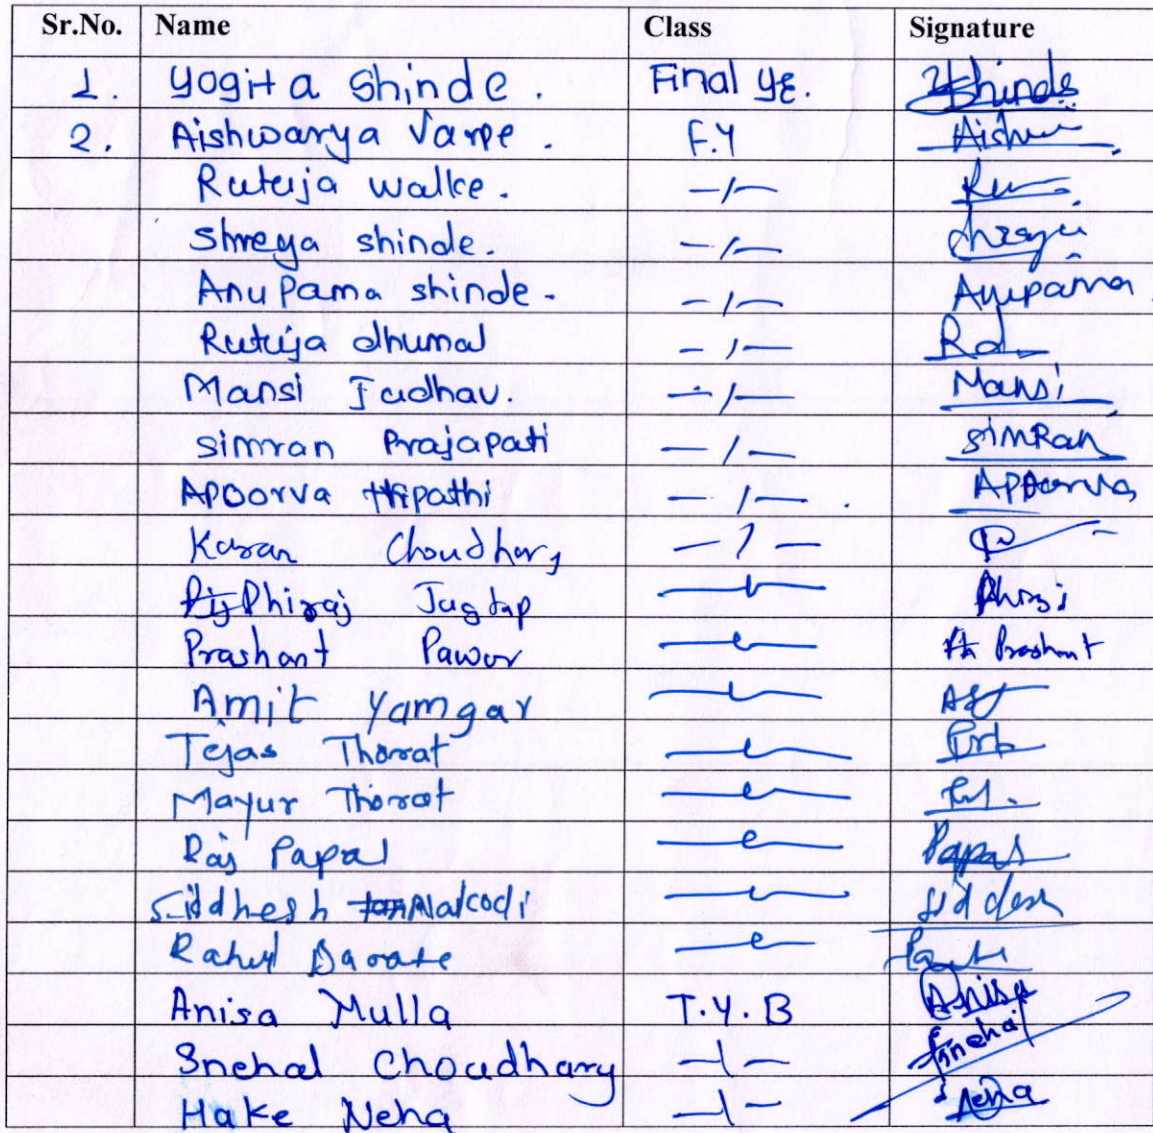 Sr.No. Name Class Signature
1. Yogita Shinde. Final YE. YShinde
2. Aishwarya Varpe. F.Y Aishw
Rutuja walke. -/-
Shreya shinde. -/- Shreya
Anupama shinde. -/- Anupama.
Rutuja dhumal -/-
Mansi Jadhav. -/- Mansi
simran Prajapati -/- simRan
Apoorva tripathi -/-. Apoorva
Karan Choudhary -/-
Dhiraj Jagtap
Prashant Pawar Prashant
Amit Yamgar
Tejas Thorat
Mayur Thorat
Raj Papal Papal
Siddhesh
Rahul Darate
Anisa Mulla T.Y.B Anisa
Snehal Choudhary -\- Snehal
Hake Neha -\- Neha